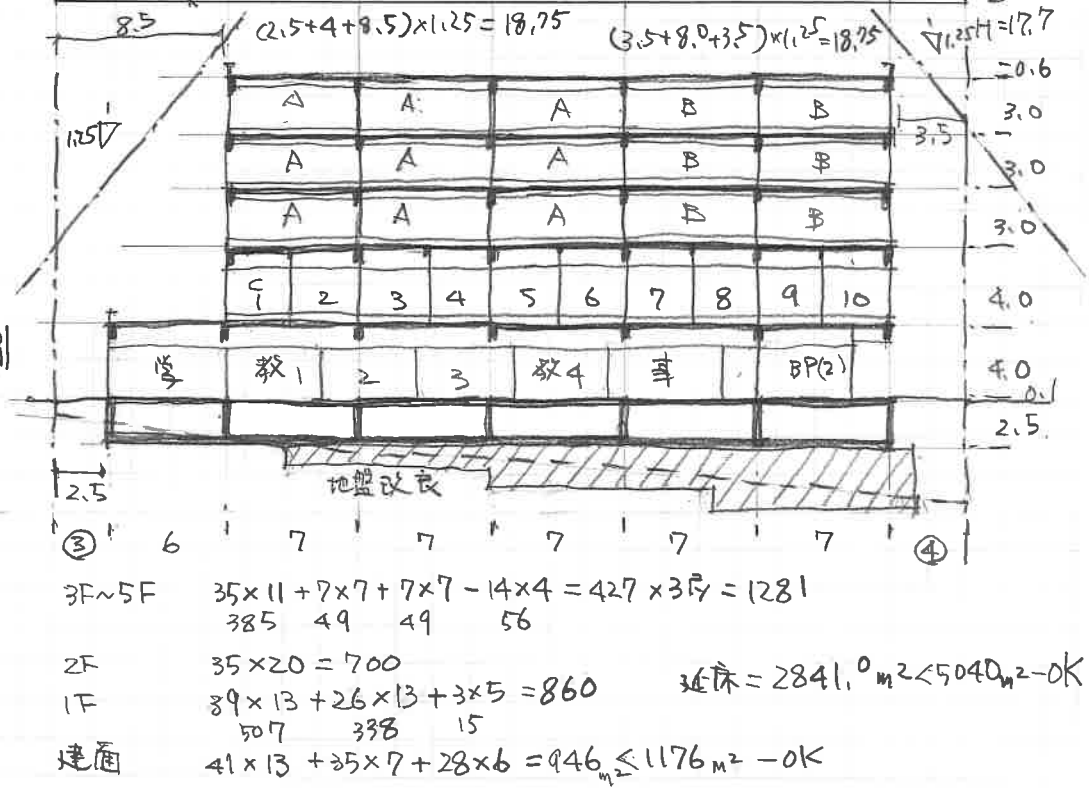 8.5
(2.5+4+8.5)×1.25=18.75
(3.5+8.0+3.5)×1.25=18.75
1.25 H=17.7
0.6
A A A B B
3.0
1.25
3.5
A A A B B
3.0
A A A B B
3.0
C
1 2 3 4 5 6 7 8 9 10
4.0
学 教1 2 3 教4 事 BP(2)
4.0
0.1
2.5
2.5
地盤改良
③ 6 7 7 7 7 7 ④
3F~5F 35×11+7×7+7×7-14×4=427×3F=1281
385 49 49 56
2F 35×20=700
1F 39×13+26×13+3×5=860
507 338 15
延床=2841.0m2<5040m2-OK
建面 41×13+35×7+28×6=946m2≦1176m2-OK